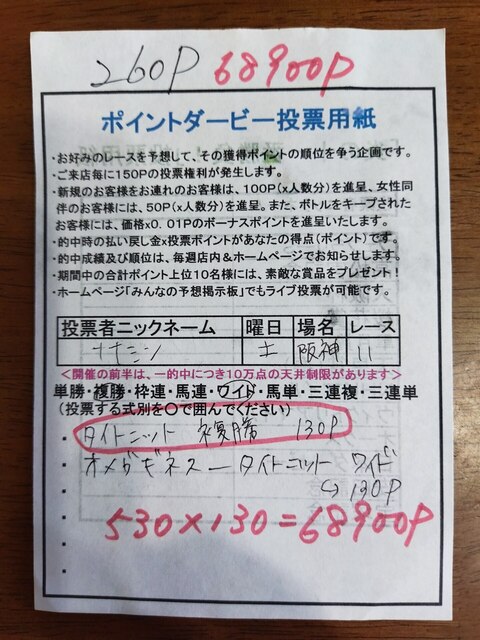 260P 68900P
ポイントダービー投票用紙
・お好みのレースを予想して、その獲得ポイントの順位を争う企画です。
・ご来店毎に150Pの投票権利が発生します。
・新規のお客様をお連れのお客様は、100P(x人数分)を進呈、女性同
伴のお客様には、50P(x人数分)を進呈。また、ボトルをキープされた
お客様には、価格x0.01Pのボーナスポイントを進呈いたします。
・的中時の払い戻し金x投票ポイントがあなたの得点(ポイント)です。
・的中成績及び順位は、毎週店内&ホームページでお知らせします。
・期間中の合計ポイント上位10名様には、素敵な賞品をプレゼント!
・ホームページ「みんなの予想掲示板」でもライブ投票が可能です。
投票者ニックネーム 曜日 場名 レース
土 阪神 11
<開催の前半は、一的中につき10万点の天井制限があります>
単勝・複勝・枠連・馬連・ワイド・馬単・三連複・三連単
(投票する式別を〇で囲んでください)
・タイトニット 複勝 130P
・オメガギネス ー タイトニット ワイド
・↳ 130P
・530×130=68900P
・
・